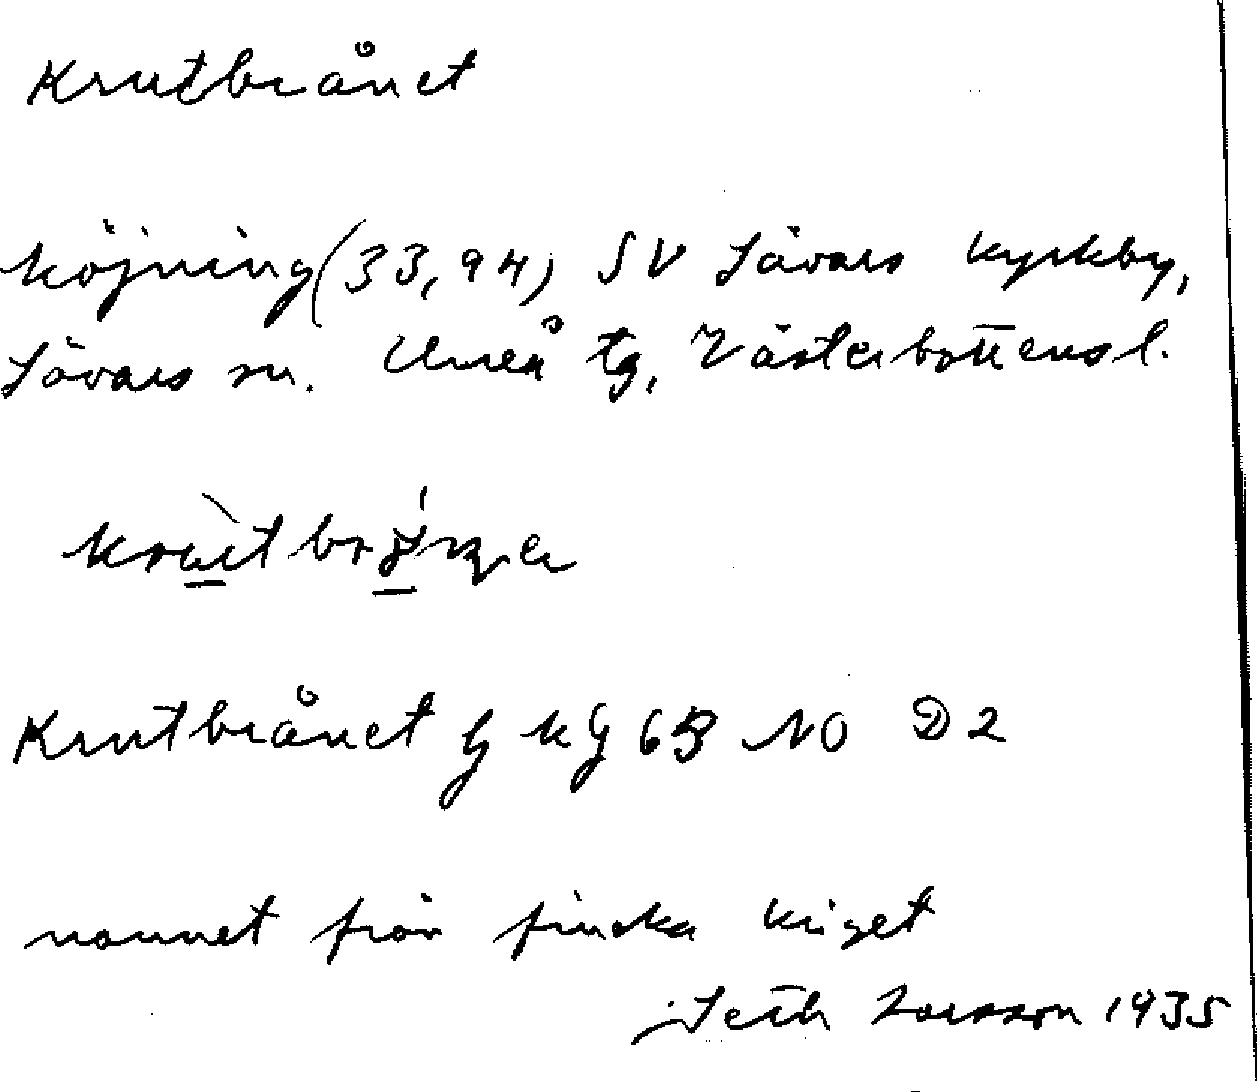 Krutbrånet
höjning (33,94) SV Sävars kyrkby,
Sävars sn. Umeå tg, Västerbottens l.
Krutbrånet
kg 63 NO D2
namnet från finska kriget
Seth Larsson 1935